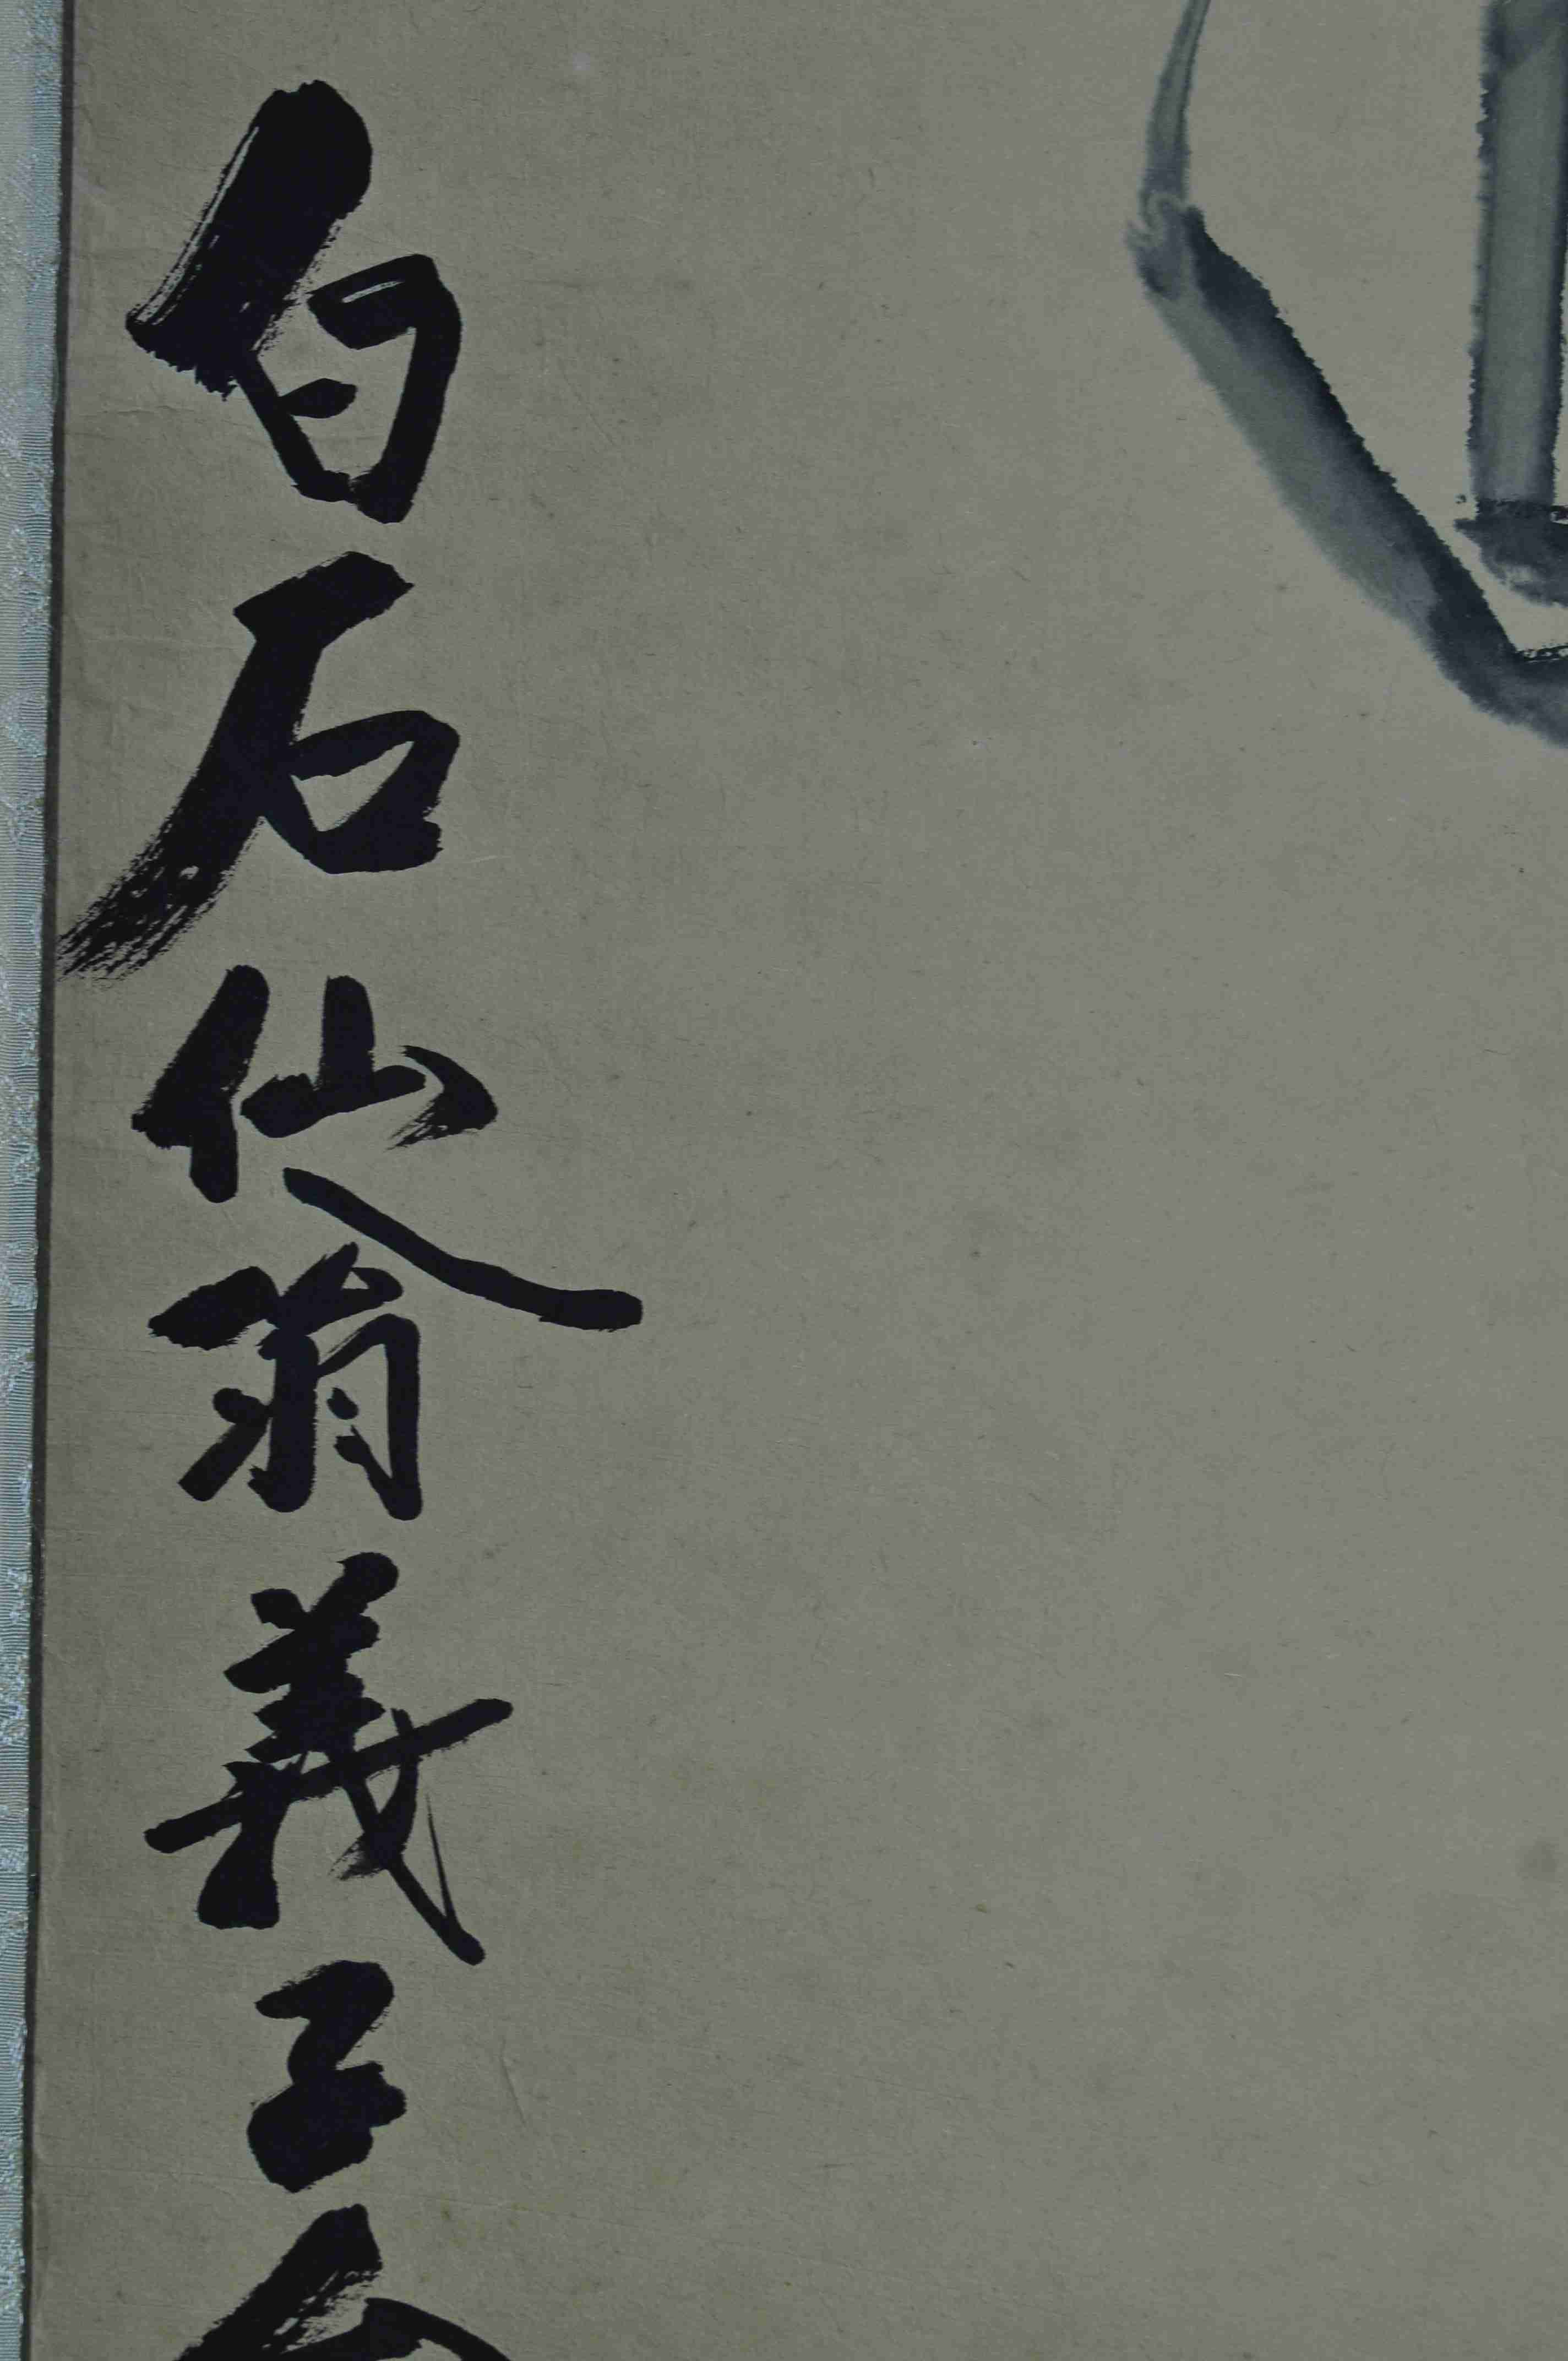 白石仙翁義正